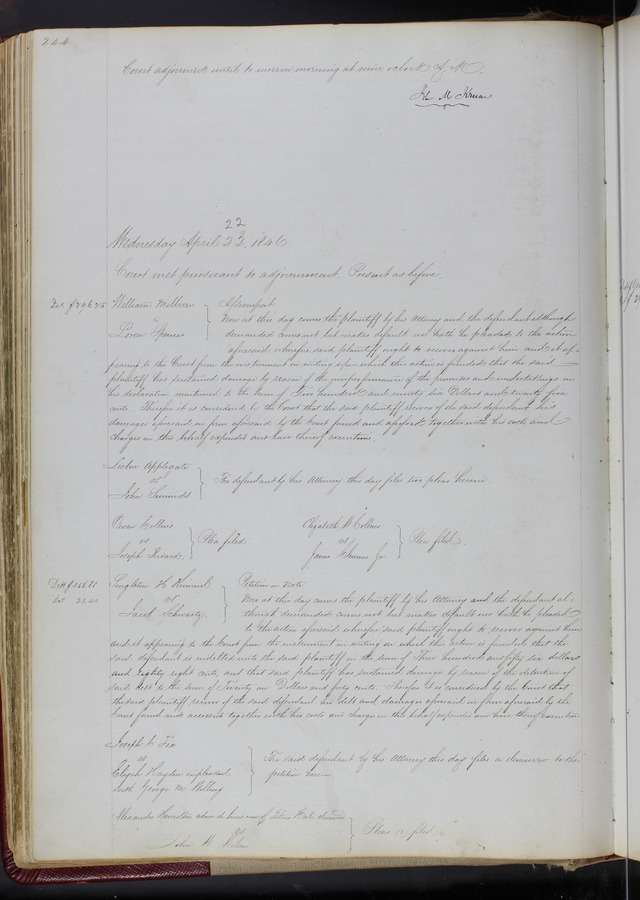 244
Court adjourned until to morrow morning at nine o'clock A. M.
Jno M Krum
22
Wednesday April 22, 1846
Court met pursuant to adjournment. Present as before.
Dam. $296.25 William Milburn
vs
Loren Spencer
Assumpsit
Now at this day comes the plaintiff by his Attorney and the defendant although
demanded comes not but makes default nor hath he pleaded to the action
aforesaid wherefore said plaintiff ought to recover against him and it ap-
pearing to the Court from the instrument in writing upon which this action is founded that the said
plaintiff has sustained damage by reason of the nonperformance of the promises and undertakings in
his declaration mentioned to the sum of Two hundred and ninety six Dollars and twenty five
cents. Therefore it is considered by the Court that the said plaintiff recover of the said defendant his
damages aforesaid in form aforesaid by the Court found and assessed together with his costs and
charges in this behalf expended and have thereof execution.
Lisbon Applegate
vs
John Simonds
The defendant by his Attorney this day files two pleas herein.
Owen Collins
vs
Joseph
Plea filed.
Elizabeth W Collins
vs
James Jr.
Plea filed.
Debt $356.88
Dam 21.40
Singleton H Kimmel
vs
Jacob Schwartz
Petition on Note
Now at this day comes the plaintiff by his Attorney and the defendant al-
though demanded comes not but makes default nor hath he pleaded
to the action aforesaid wherefore said plaintiff ought to recover against him
and it appearing to the Court from the instrument in writing on which this action is founded that the
said defendant is indebted unto the said plaintiff in the sum of Three hundred and fifty six dollars
and Eighty eight cents, and that said plaintiff has sustained damage by reason of the detention of
said debt to the sum of Twenty one Dollars and forty cents. Therefore it is considered by the Court that
the said plaintiff recover of the said defendant his debt and damages aforesaid in form aforesaid by the
Court found and assessed together with his costs and charges in this behalf expended and have thereof Execution
Joseph C Fox
vs
Elijah Hayden impleaded
with George M
The said defendant by his Attorney this day files a demurrer to the
petition herein.
Alexander Hamilton
vs
John W
Pleas is filed.